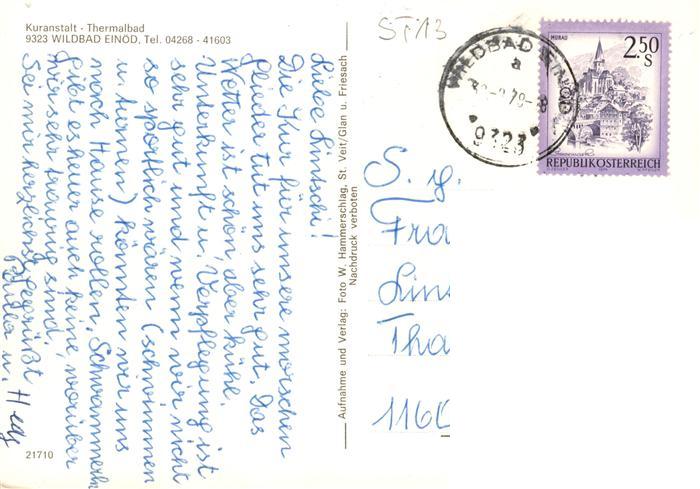 Kuranstalt - Thermalbad
9323 WILDBAD EINÖD, Tel. 04268 - 41603
Liebe Lintschi!
Die Kur für unsere morschen
Glieder tut uns sehr gut. Das
Wetter ist schön, aber kühle.
Unterkunft u. Verpflegung ist
sehr gut und wenn wir nicht
so sportlich wären (schwimmen
u. turnen) könnten wir uns
nach Hause rollen. Schwammerln
gibt es heuer auch keine, worüber
wir sehr traurig sind.
Sei mir herzlichst gegrüßt
u. Hedy
21710
Aufnahme und Verlag: Foto W. Hammerschlag, St. Veit/Glan u. Friesach
Nachdruck verboten
ST 13
WILDBAD EINÖD
a
79-8
9323
MURAU
2.50
S
REPUBLIK ÖSTERREICH
S. g.
Fra
Lin
Tha
1160